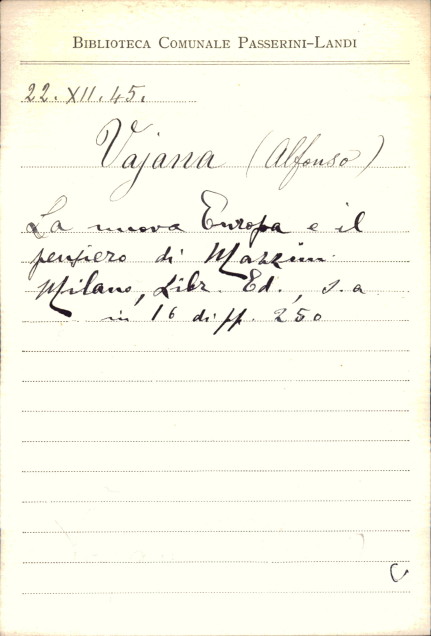 BIBLIOTECA COMUNALE PASSERINI-LANDI
22. XII. 45.
Vajana (Alfonso)
La nuova Europa e il
pensiero di Mazzini.
Milano, Libr. Ed., s. a
in 16 di pp. 250